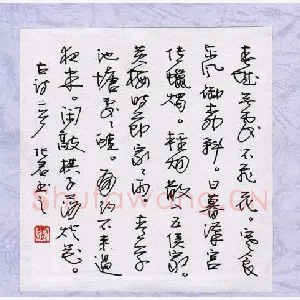 春城無處不飛花。寒食
東風御柳斜。日暮漢宮
傳蠟燭。輕烟散入五侯家。
黃梅時節家家雨。青草
池塘處處蛙。有約不來過
夜半。閑敲棋子落燈花。
古詩二首
Shufawang.CN